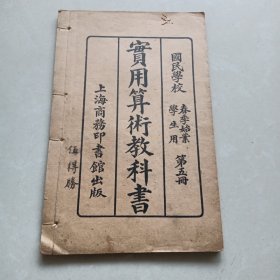 國民學校
春季始業
學生用
第五冊
實用算術教科書
上海商務印書館出版
伍得勝